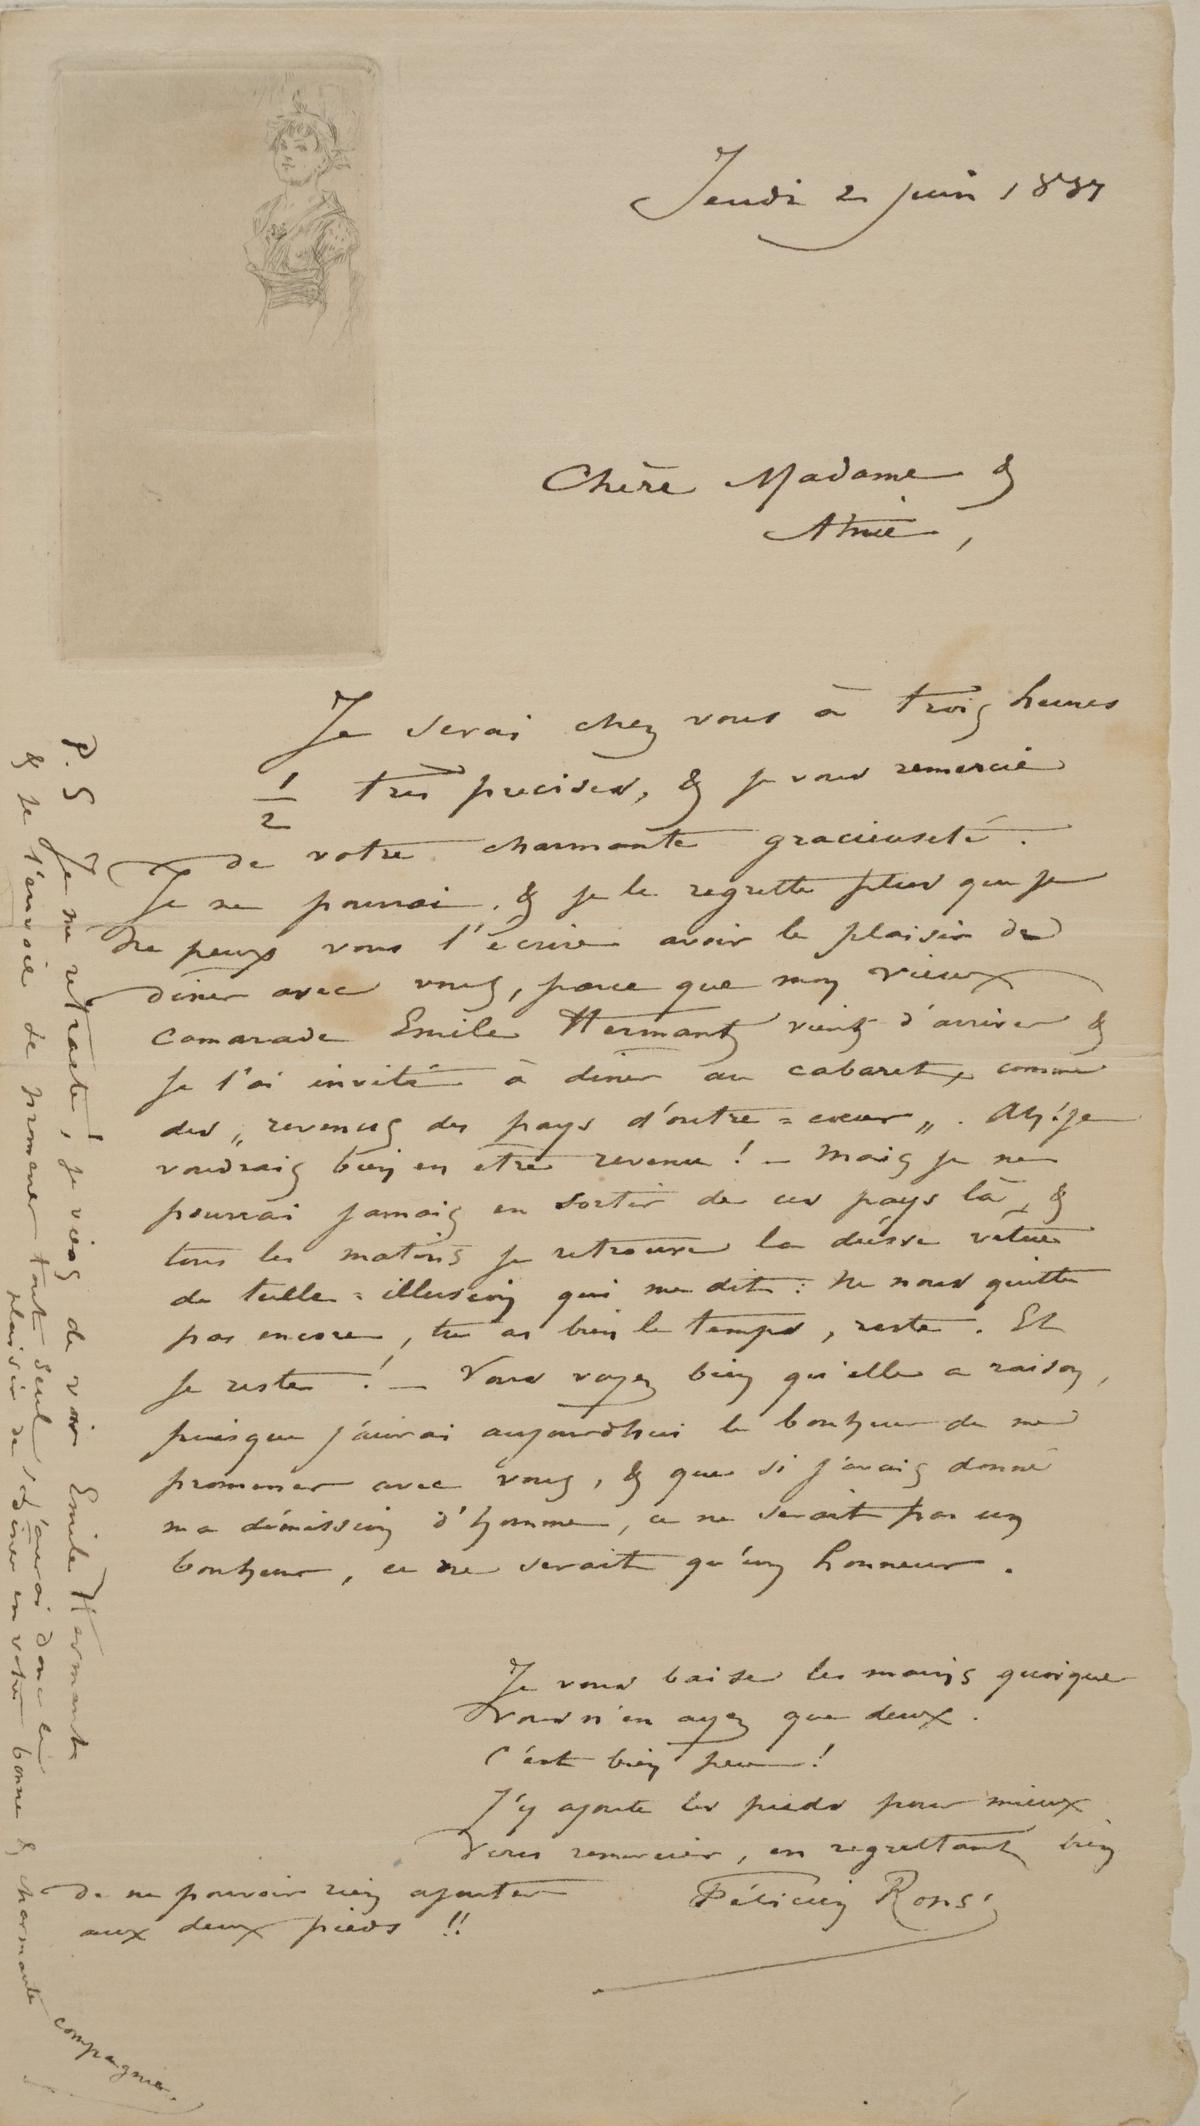 Jeudi 2 juin 1887
Chère Madame &
Amie,
Je serai chez vous à trois heures
1/2 très précises, & je vous remercie
de votre charmante gracieuseté.
Je ne pourrai, & je le regrette plus que je
ne peux vous l'écrire avoir le plaisir de
diner avec vous, parce que mon vieux
camarade Emile Hermant vient d'arriver &
je l'ai invité à diner au cabaret, comme
des „ revenus des pays d'outre = cœur „. Ah! je
voudrais bien en être revenu ! – Mais je ne
pourrai jamais en sortir de ces pays là, &
tous les matins je retrouve la déesse vétue
de tulle = illusion qui me dit : Ne nous quitte
pas encore, tu as bien le temps, reste. Et
je reste ! – Vous voyez bien qu'elle a raison,
puisque j'aurai aujourdhui le bonheur de me
promener avec vous, & que si j'avais donné
ma démission d'homme, ce ne serait pas un
bonheur, ce ne serait qu'un honneur.
Je vous baise les mains quoique
vous n'en ayez que deux.
C'est bien peu !
J'y ajoute les pieds pour mieux
vous remercier, en regrettant bien
de ne pouvoir rien ajouter
aux deux pieds !!
Félicien Rops
P.S Je me retracte, je viens de voir Emile Hermant
& je l'envoie se promener tout seul. J'aurai donc le
plaisir de diner en votre bonne & charmante compagnie.